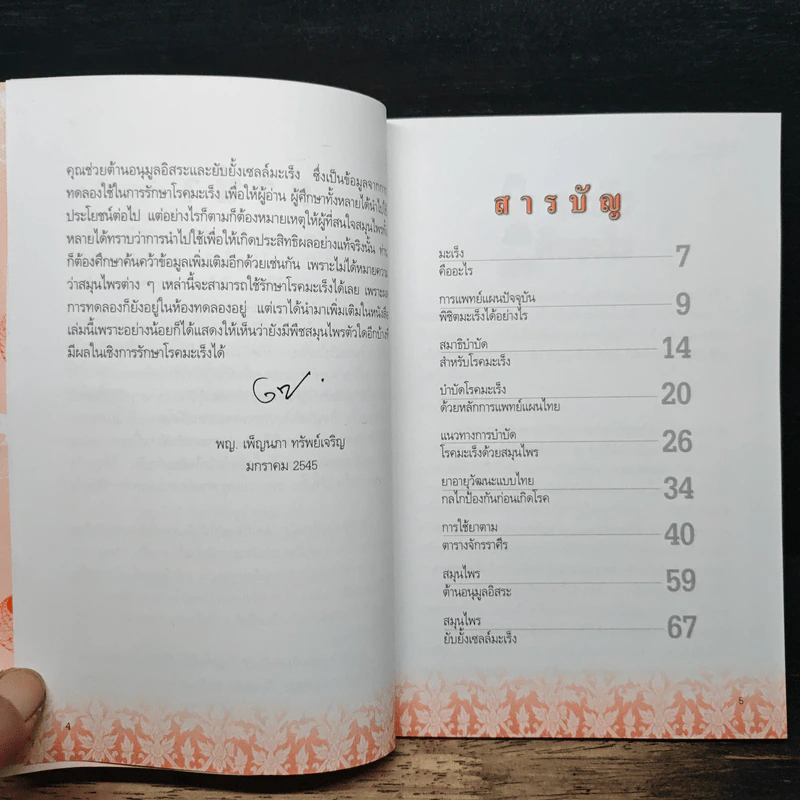 คุณช่วยต้านอนุมูลอิสระและยับยั้งเซลล์มะเร็ง ซึ่งเป็นข้อมูลจากการ
ทดลองใช้ในการรักษาโรคมะเร็ง เพื่อให้ผู้อ่าน ผู้ศึกษาทั้งหลายได้นำไปใช้
ประโยชน์ต่อไป แต่อย่างไรก็ตามก็ต้องหมายเหตุให้ผู้ที่สนใจสมุนไพร
หลายได้ทราบว่าการนำไปใช้เพื่อให้เกิดประสิทธิผลอย่างแท้จริงนั้น
ก็ต้องศึกษาค้นคว้าข้อมูลเพิ่มเติมอีกด้วยเช่นกัน เพราะไม่ได้หมายความ
ว่าสมุนไพรต่าง ๆ เหล่านี้จะสามารถใช้รักษาโรคมะเร็งได้เลย เพราะผล
การทดลองก็ยังอยู่ในห้องทดลองอยู่ แต่เราได้นำมาเพิ่มเติมในหนังสือ
เล่มนี้เพราะอย่างน้อยก็ได้แสดงให้เห็นว่ายังมีพืชสมุนไพรตัวใดอีกบ้างที่
มีผลในเชิงการรักษาโรคมะเร็งได้
พญ. เพ็ญนภา ทรัพย์เจริญ
มกราคม 2545
4
สารบัญ
มะเร็ง 7
คืออะไร
การแพทย์แผนปัจจุบัน 9
พิชิตมะเร็งได้อย่างไร
สมาธิบำบัด 14
สำหรับโรคมะเร็ง
บำบัดโรคมะเร็ง 20
ด้วยหลักการแพทย์แผนไทย
แนวทางการบำบัด 26
โรคมะเร็งด้วยสมุนไพร
ยาอายุวัฒนะแบบไทย 34
กลไกป้องกันก่อนเกิดโรค
การใช้ยาตาม 40
ตารางจักรราศีร
สมุนไพร 59
ต้านอนุมูลอิสระ
สมุนไพร 67
ยับยั้งเซลล์มะเร็ง
5